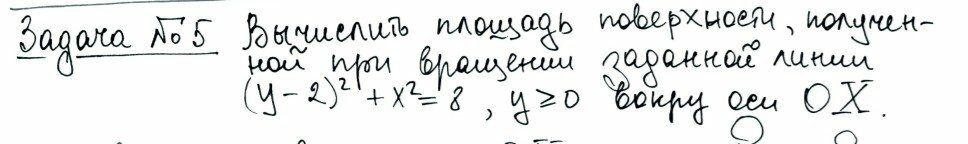 Задача №5 Вычислить площадь поверхности, получен-
ной при вращении заданной линии
(y-2)² + x² = 8, y ≥ 0 вокру оси OX.